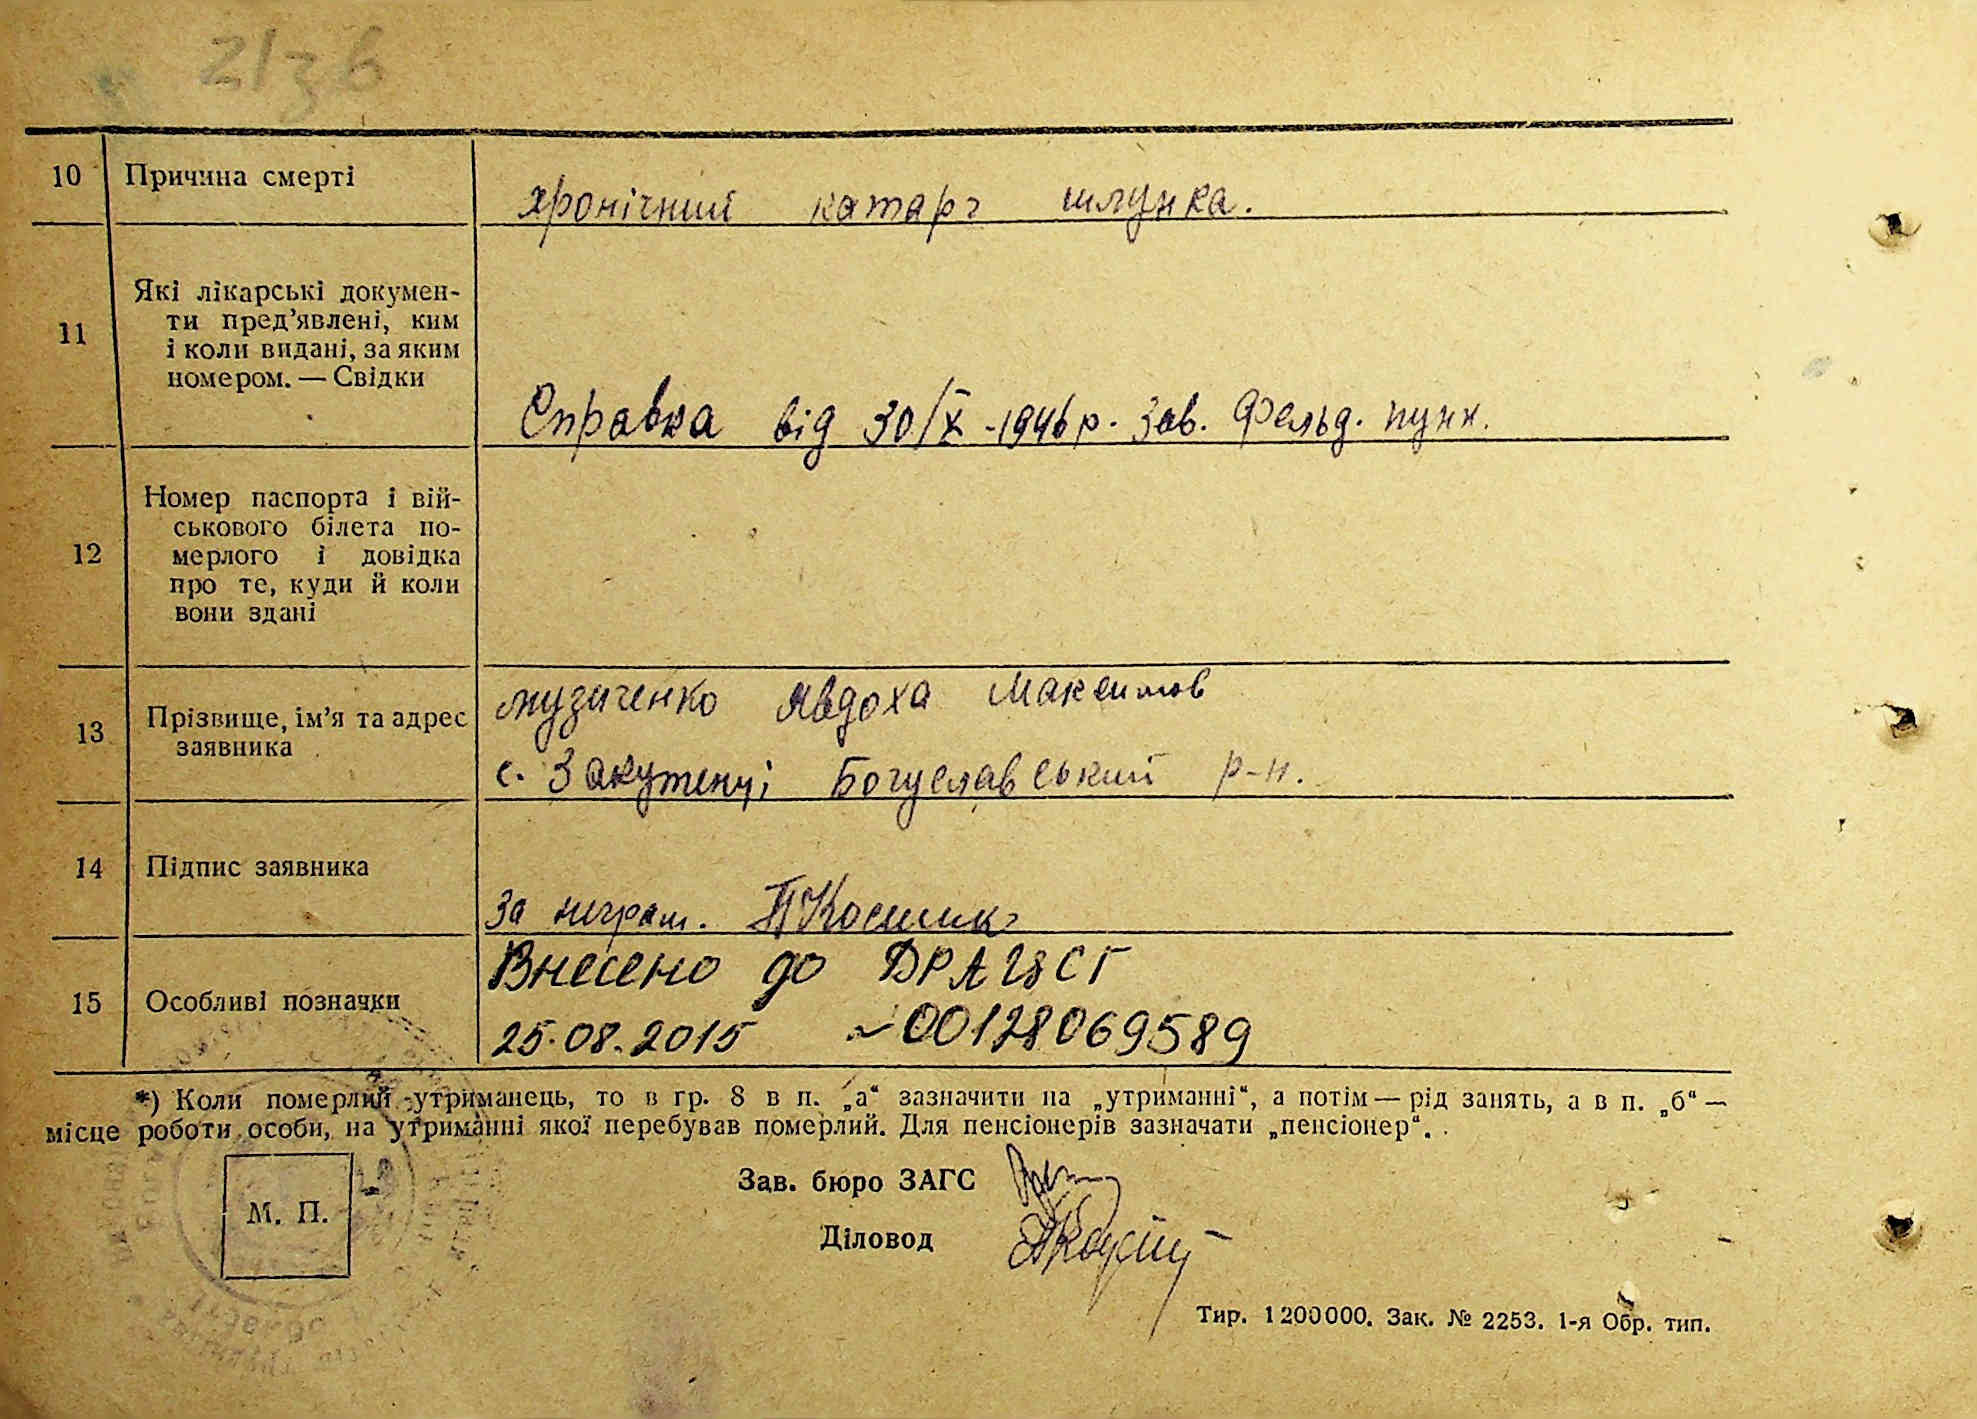 2136
10 Причина смерті
хронічний катарг шлунка.
11 Які лікарські докумен-
ти пред'явлені, ким
і коли видані, за яким
номером. — Свідки
Справка від 30/X -1946 р. Зав. Фельд. пунк.
12 Номер паспорта і вій-
ськового білета по-
мерлого і довідка
про те, куди й коли
вони здані
13 Прізвище, ім'я та адрес
заявника
Музиченко Явдоха Максимов
с. Закутенці Богуславський р-н.
14 Підпис заявника
За неграм.
15 Особливі позначки
Внесено до ДРАЦСГ
25.08.2015 ~00128069589
*) Коли померлий утриманець, то в гр. 8 в п. „а“ зазначити на „утриманні“, а потім — рід занять, а в п. „б“ —
місце роботи особи, на утриманні якої перебував померлий. Для пенсіонерів зазначати „пенсіонер“.
М. П.
Зав. бюро ЗАГС
Діловод
Тир. 1200000. Зак. № 2253. 1-я Обр. тип.